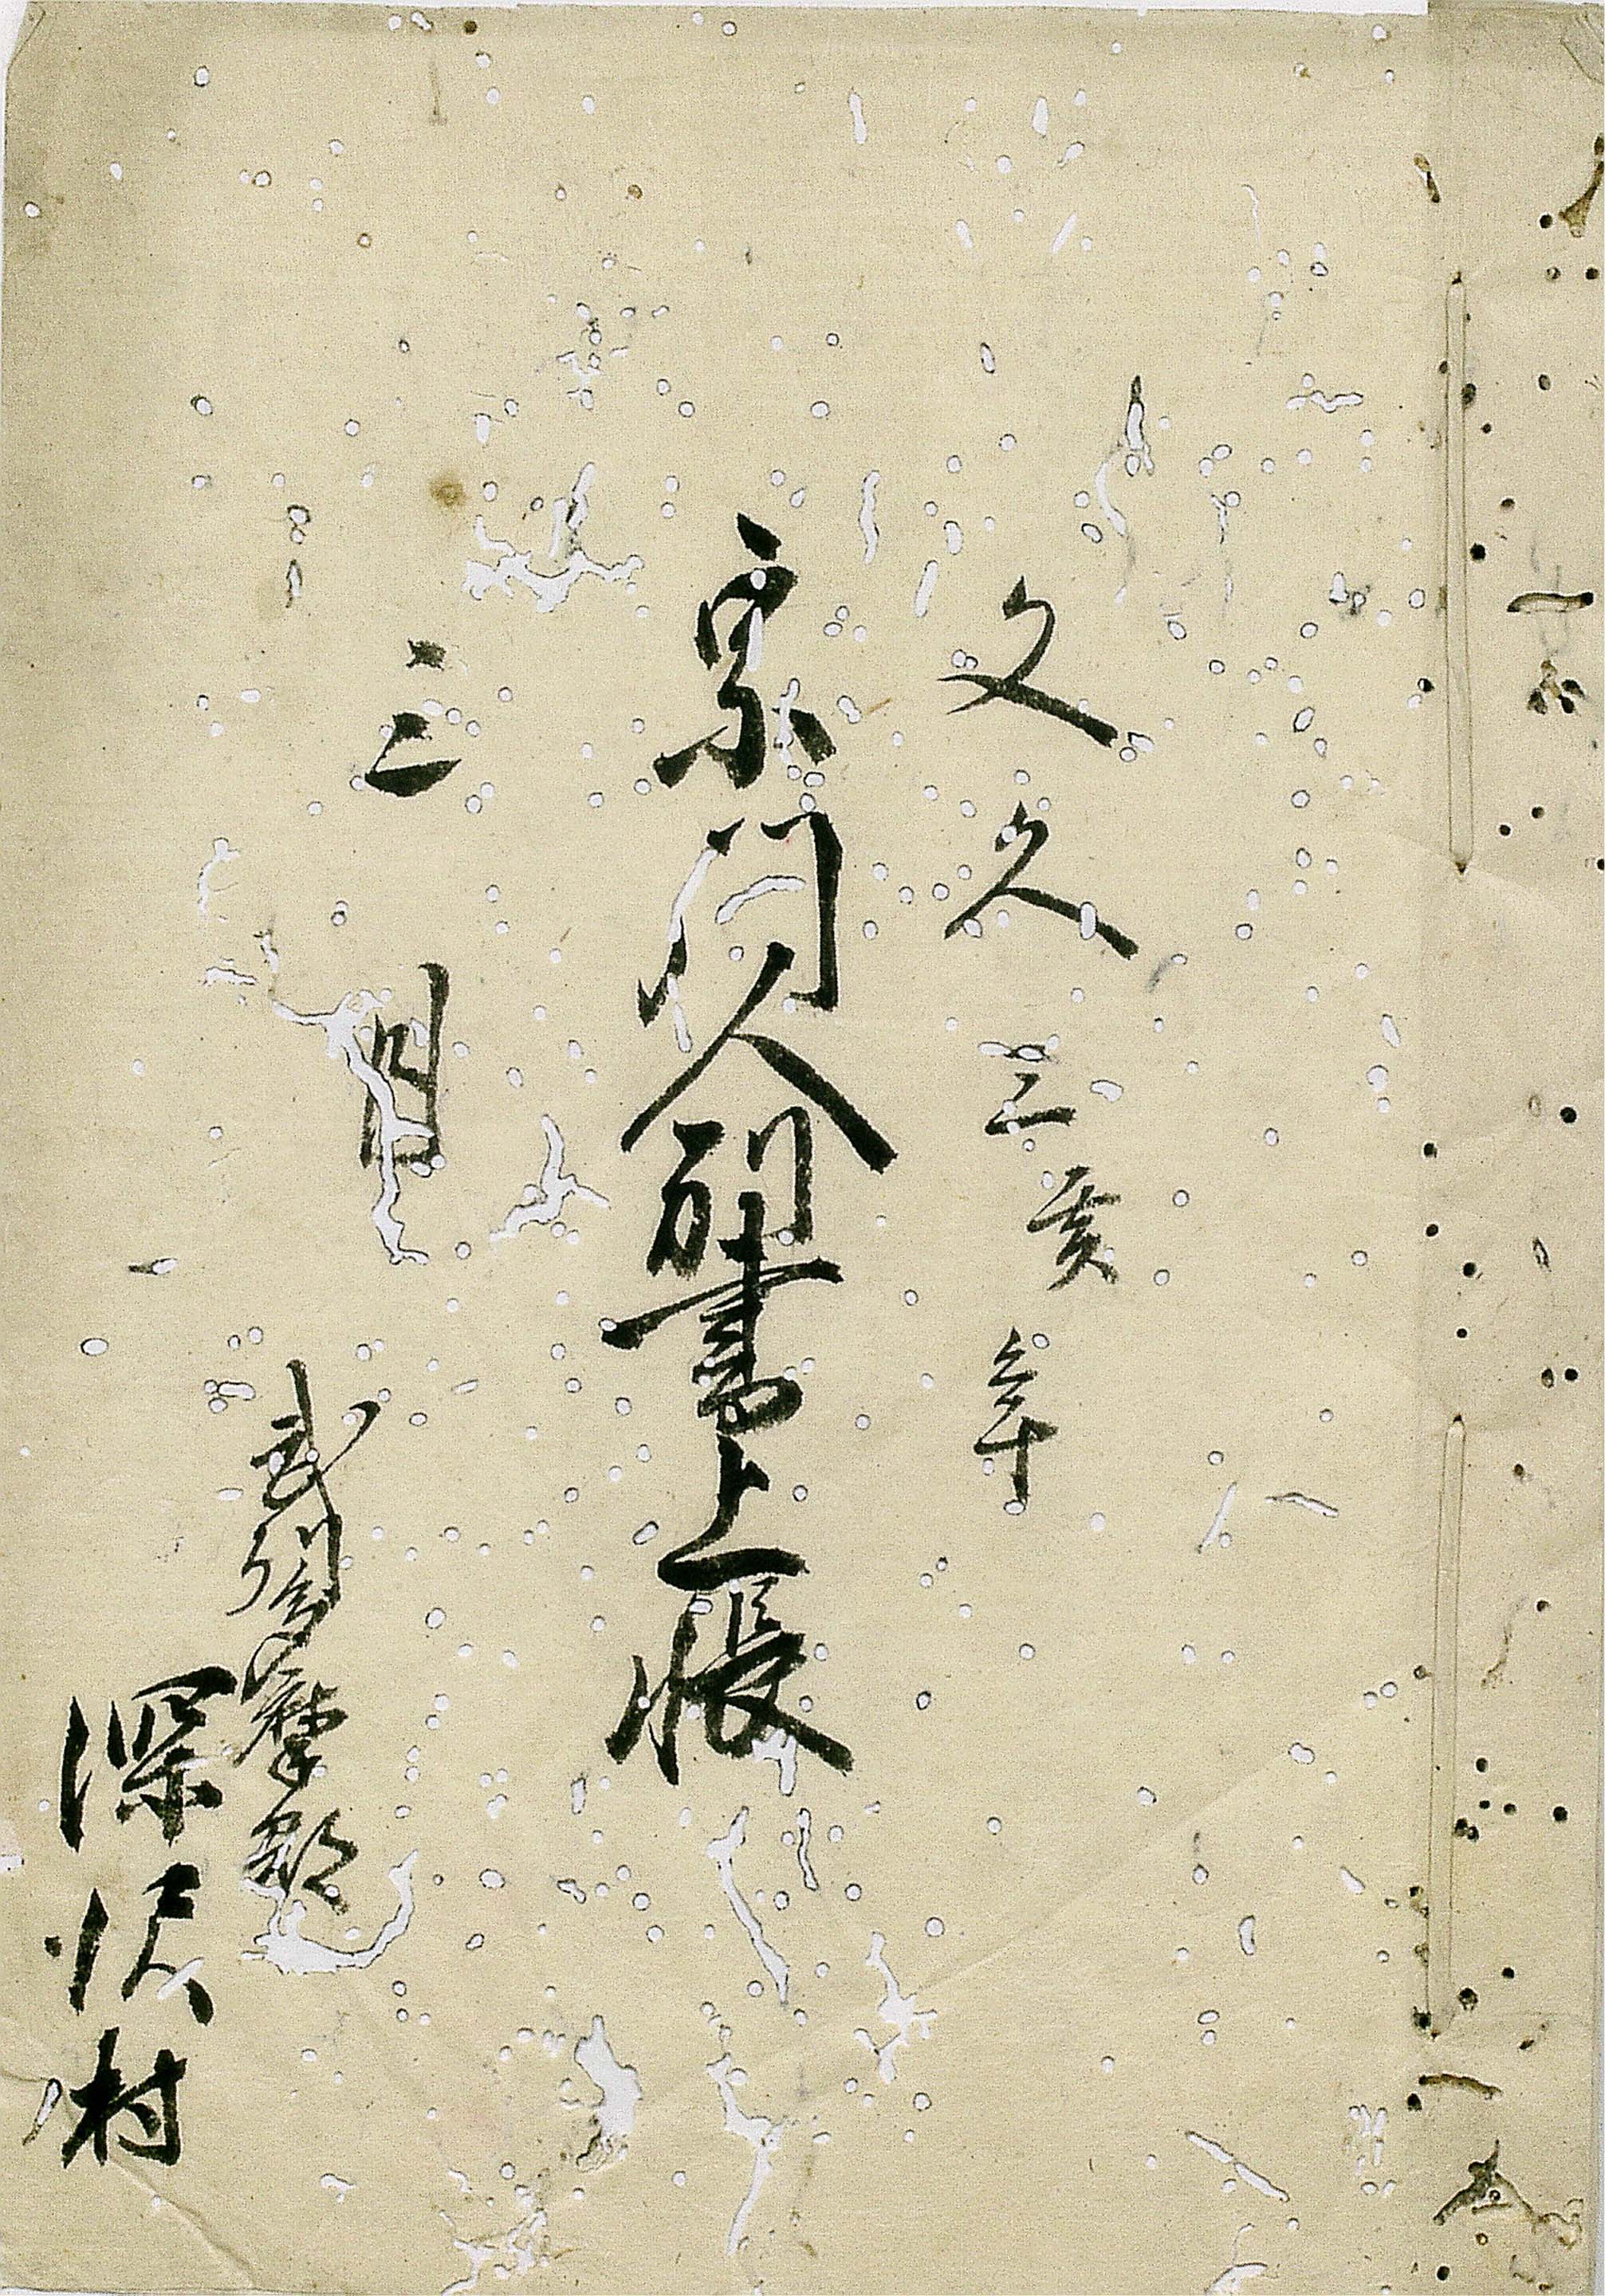 文久三亥年
宗門人別書上帳
三月
武州多摩郡
深沢村